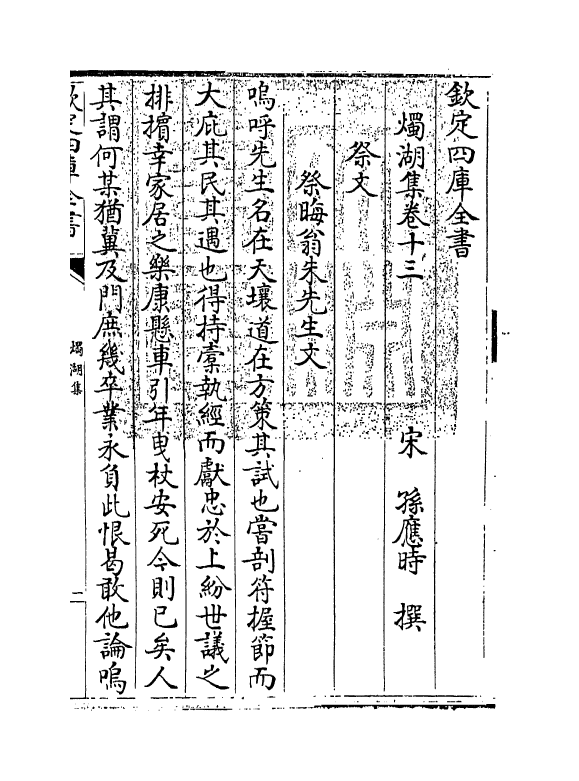 欽定四庫全書
燭湖集卷十三　宋　孫應時　撰
祭文
祭晦翁朱先生文
嗚呼先生名在天壤道在方策其試也嘗剖符握節而
大庇其民其遇也得持橐執經而獻忠於上紛世議之
排擯幸家居之樂康懸車引年曳杖安死今則已矣人
其謂何某猶冀及門庶幾卒業永負此恨曷敢他論嗚
欽定四庫全書
燭湖集